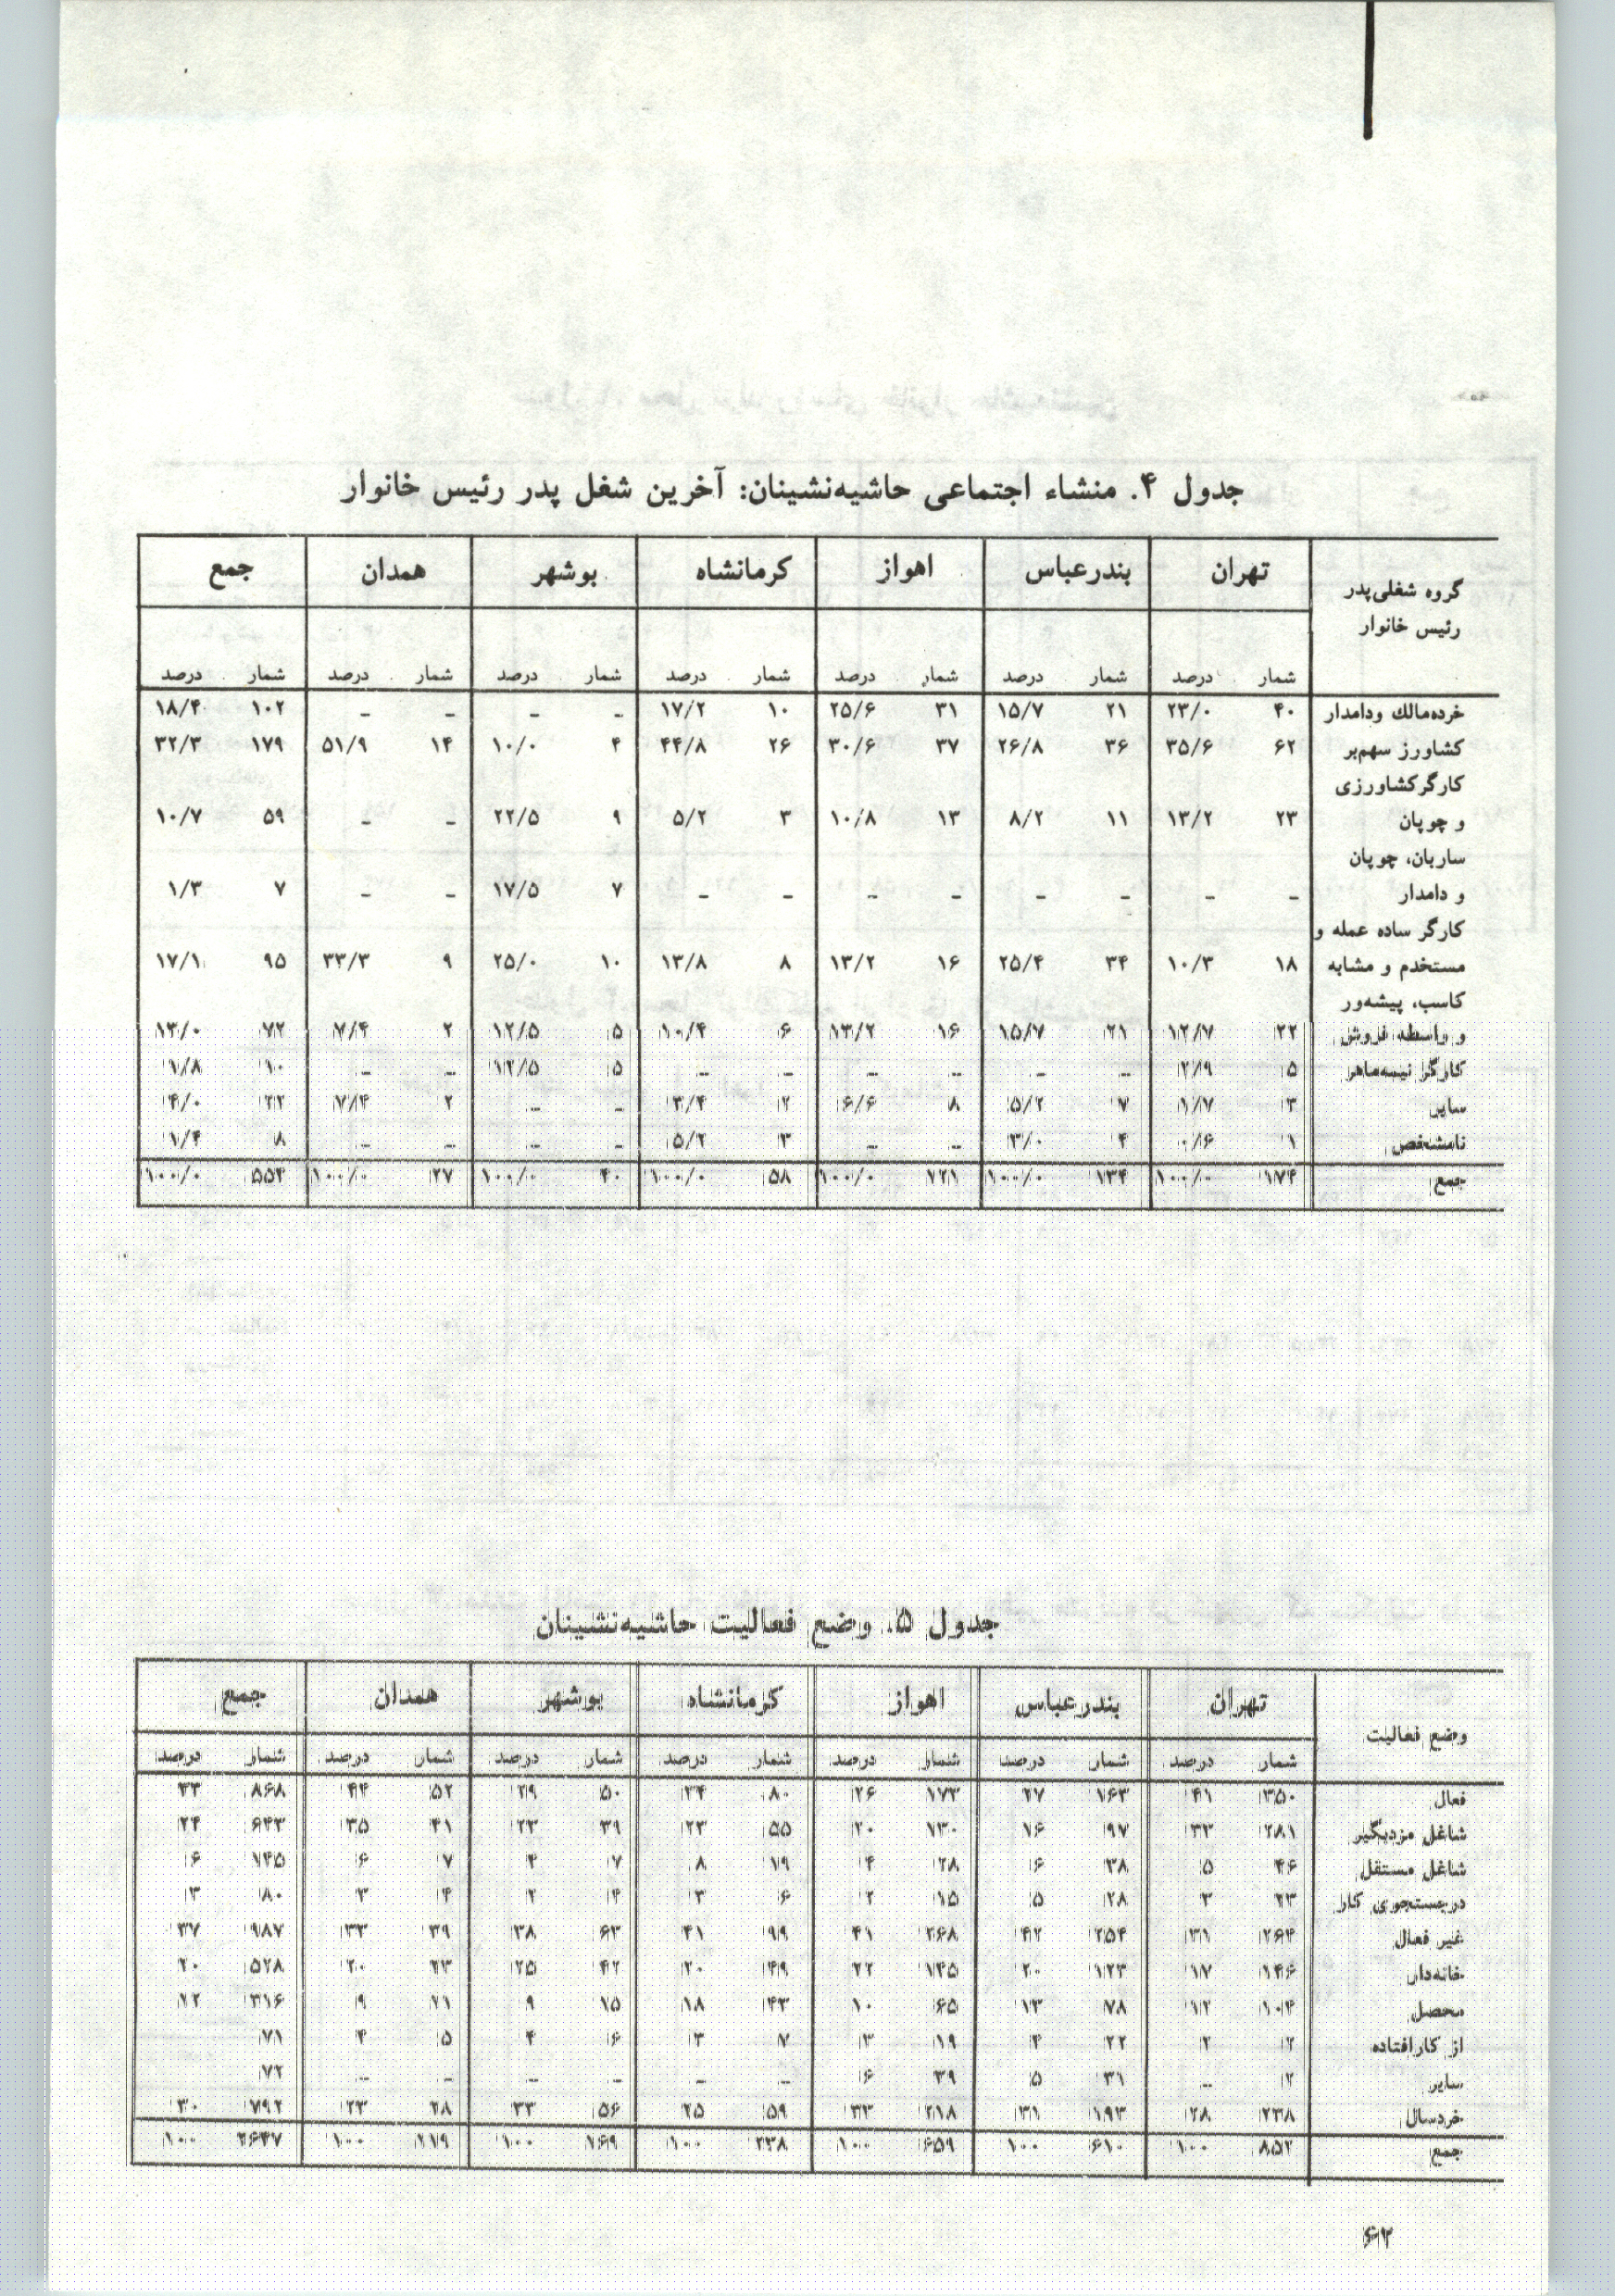 جدول ۴. منشاء اجتماعی حاشیه‌نشینان: آخرین شغل پدر رئیس خانوار
گروه شغلی پدر تهران بندرعباس اهواز کرمانشاه بوشهر همدان جمع
رئیس خانوار
شمار درصد شمار درصد شمار درصد شمار درصد شمار درصد شمار درصد شمار درصد
خرده‌مالك ودامدار ۴۰ ۲۳/۰ ۲۱ ۱۵/۷ ۳۱ ۲۵/۶ ۱۰ ۱۷/۲ – – – – ۱۰۲ ۱۸/۴
کشاورز سهم‌بر ۶۲ ۳۵/۶ ۳۶ ۲۶/۸ ۳۷ ۳۰/۶ ۲۶ ۴۴/۸ ۴ ۱۰/۰ ۱۴ ۵۱/۹ ۱۷۹ ۳۲/۳
کارگر کشاورزی
و چوپان ۲۳ ۱۳/۲ ۱۱ ۸/۲ ۱۳ ۱۰/۸ ۳ ۵/۲ ۹ ۲۲/۵ – – ۵۹ ۱۰/۷
ساربان، چوپان
و دامدار – – – – – – – – ۷ ۱۷/۵ – – ۷ ۱/۳
کارگر ساده عمله و
مستخدم و مشابه ۱۸ ۱۰/۳ ۳۴ ۲۵/۴ ۱۶ ۱۳/۲ ۸ ۱۳/۸ ۱۰ ۲۵/۰ ۹ ۳۳/۳ ۹۵ ۱۷/۱
کاسب، پیشه‌ور
و واسطه فروش ۲۲ ۱۲/۷ ۲۱ ۱۵/۷ ۱۶ ۱۳/۲ ۶ ۱۰/۴ ۵ ۱۲/۵ ۲ ۷/۴ ۷۲ ۱۳/۰
کارگر نیمه‌ماهر ۵ ۲/۹ – – – – – – ۵ ۱۲/۵ – – ۱۰ ۱/۸
سایر ۳ ۱/۷ ۷ ۵/۲ ۸ ۶/۶ ۲ ۳/۴ – – ۲ ۷/۴ ۲۲ ۴/۰
نامشخص ۱ ۰/۶ ۴ ۳/۰ – – ۳ ۵/۲ – – – – ۸ ۱/۴
جمع ۱۷۴ ۱۰۰/۰ ۱۳۴ ۱۰۰/۰ ۷۲۱ ۱۰۰/۰ ۵۸ ۱۰۰/۰ ۴۰ ۱۰۰/۰ ۲۷ ۱۰۰/۰ ۵۵۴ ۱۰۰/۰
جدول ۵. وضع فعالیت حاشیه‌نشینان
وضع فعالیت تهران بندرعباس اهواز کرمانشاه بوشهر همدان جمع
شمار درصد شمار درصد شمار درصد شمار درصد شمار درصد شمار درصد شمار درصد
فعال ۳۵۰ ۴۱ ۱۶۳ ۲۷ ۱۷۳ ۲۶ ۸۰ ۳۴ ۵۰ ۲۹ ۵۲ ۴۴ ۸۶۸ ۳۳
شاغل مزدبگیر ۲۸۱ ۳۳ ۹۷ ۱۶ ۱۳۰ ۲۰ ۵۵ ۲۳ ۳۹ ۲۳ ۴۱ ۳۵ ۶۴۳ ۲۴
شاغل مستقل ۴۶ ۵ ۳۸ ۶ ۲۸ ۴ ۱۹ ۸ ۷ ۴ ۷ ۶ ۱۴۵ ۶
درجستجوی کار ۲۳ ۳ ۲۸ ۵ ۱۵ ۲ ۶ ۳ ۴ ۲ ۴ ۳ ۸۰ ۳
غیر فعال ۲۶۴ ۳۱ ۲۵۴ ۴۲ ۲۶۸ ۴۱ ۹۹ ۴۱ ۶۳ ۳۸ ۳۹ ۳۳ ۹۸۷ ۳۷
خانه‌دار ۱۴۶ ۱۷ ۱۲۳ ۲۰ ۱۴۵ ۲۲ ۴۹ ۲۰ ۴۲ ۲۵ ۲۳ ۲۰ ۵۲۸ ۲۰
محصل ۱۰۴ ۱۲ ۷۸ ۱۳ ۶۵ ۱۰ ۴۳ ۱۸ ۱۵ ۹ ۱۱ ۹ ۳۱۶ ۱۲
از کارافتاده ۱۲ ۲ ۲۲ ۴ ۱۹ ۳ ۷ ۳ ۶ ۴ ۵ ۴ ۷۱
سایر ۲ – ۳۱ ۵ ۳۹ ۶ – – – – – – ۷۲
خردسال ۲۳۸ ۲۸ ۱۹۳ ۳۱ ۲۱۸ ۳۳ ۵۹ ۲۵ ۵۶ ۳۳ ۲۸ ۲۳ ۷۹۲ ۳۰
جمع ۸۵۲ ۱۰۰ ۶۱۰ ۱۰۰ ۶۵۹ ۱۰۰ ۲۳۸ ۱۰۰ ۱۶۹ ۱۰۰ ۱۱۹ ۱۰۰ ۲۶۴۷ ۱۰۰
۶۲